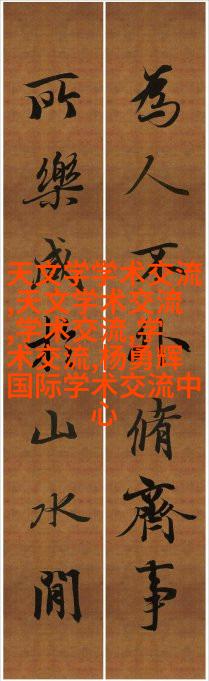 為人不外脩齊事
所樂咸在山水間
天文学学术交流
,天文学术交流
,学术交流,学
术交流,杨勇辉
国际学术交流中
心